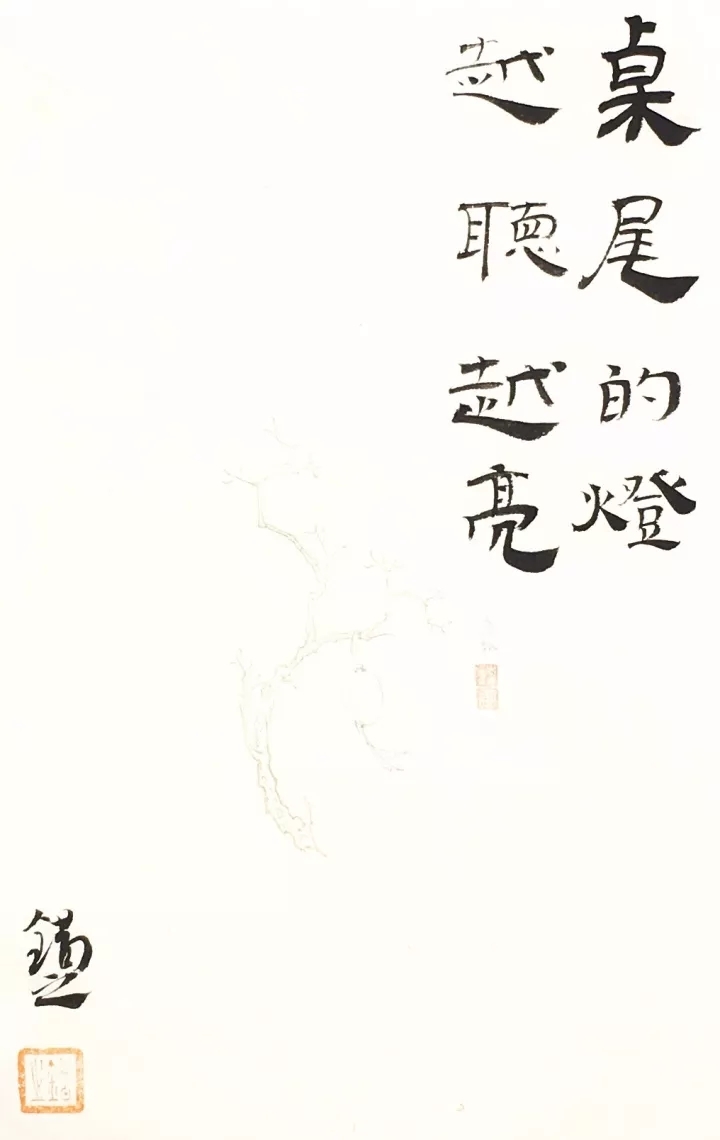 桌尾的燈
越聽越亮